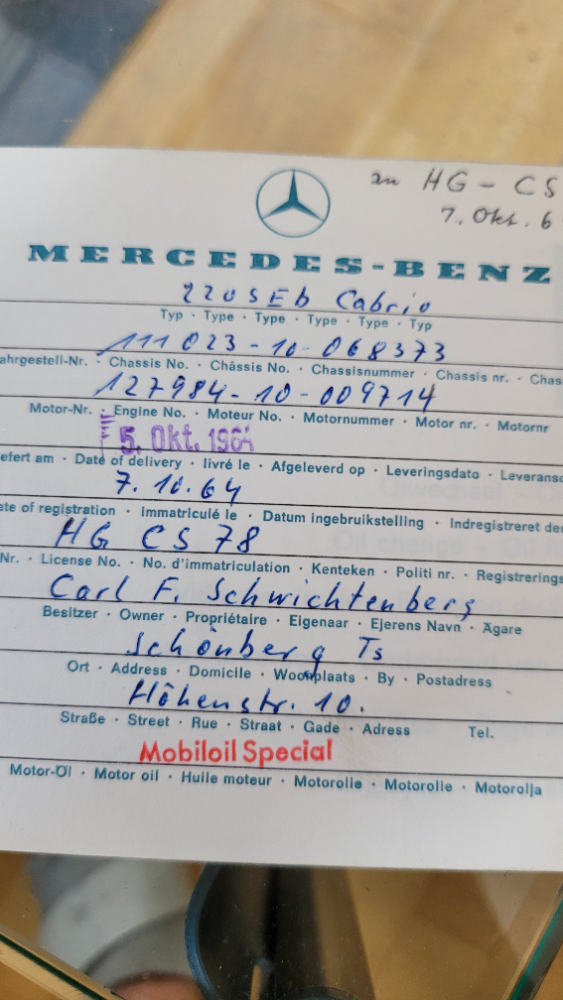 zu HG - CS
7. Okt. 6
MERCEDES-BENZ
220SEb Cabrio
Typ · Type · Type · Type · Type · Typ
111023-10-068373
ahrgestell-Nr. · Chassis No. · Châssis No. · Chassisnummer · Chassis nr. · Chas
127984-10-009714
Motor-Nr. · Engine No. · Moteur No. · Motornummer · Motor nr. · Motornr
5. Okt. 1964
efert am · Date of delivery · livré le · Afgeleverd op · Leveringsdato · Leveransd
7.10.64
ate of registration · Immatriculé le · Datum ingebruikstelling · Indregistreret de
HG CS 78
Nr. · License No. · No. d'immatriculation · Kenteken · Politi nr. · Registrerings
Carl F. Schwichtenberg
Besitzer · Owner · Propriétaire · Eigenaar · Ejerens Navn · Ägare
Schönberg Ts
Ort · Address · Domicile · Woonplaats · By · Postadress
Höhenstr. 10.
Straße · Street · Rue · Straat · Gade · Adress Tel.
Mobiloil Special
Motor-Öl · Motor oil · Huile moteur · Motorolie · Motorolie · Motorolja